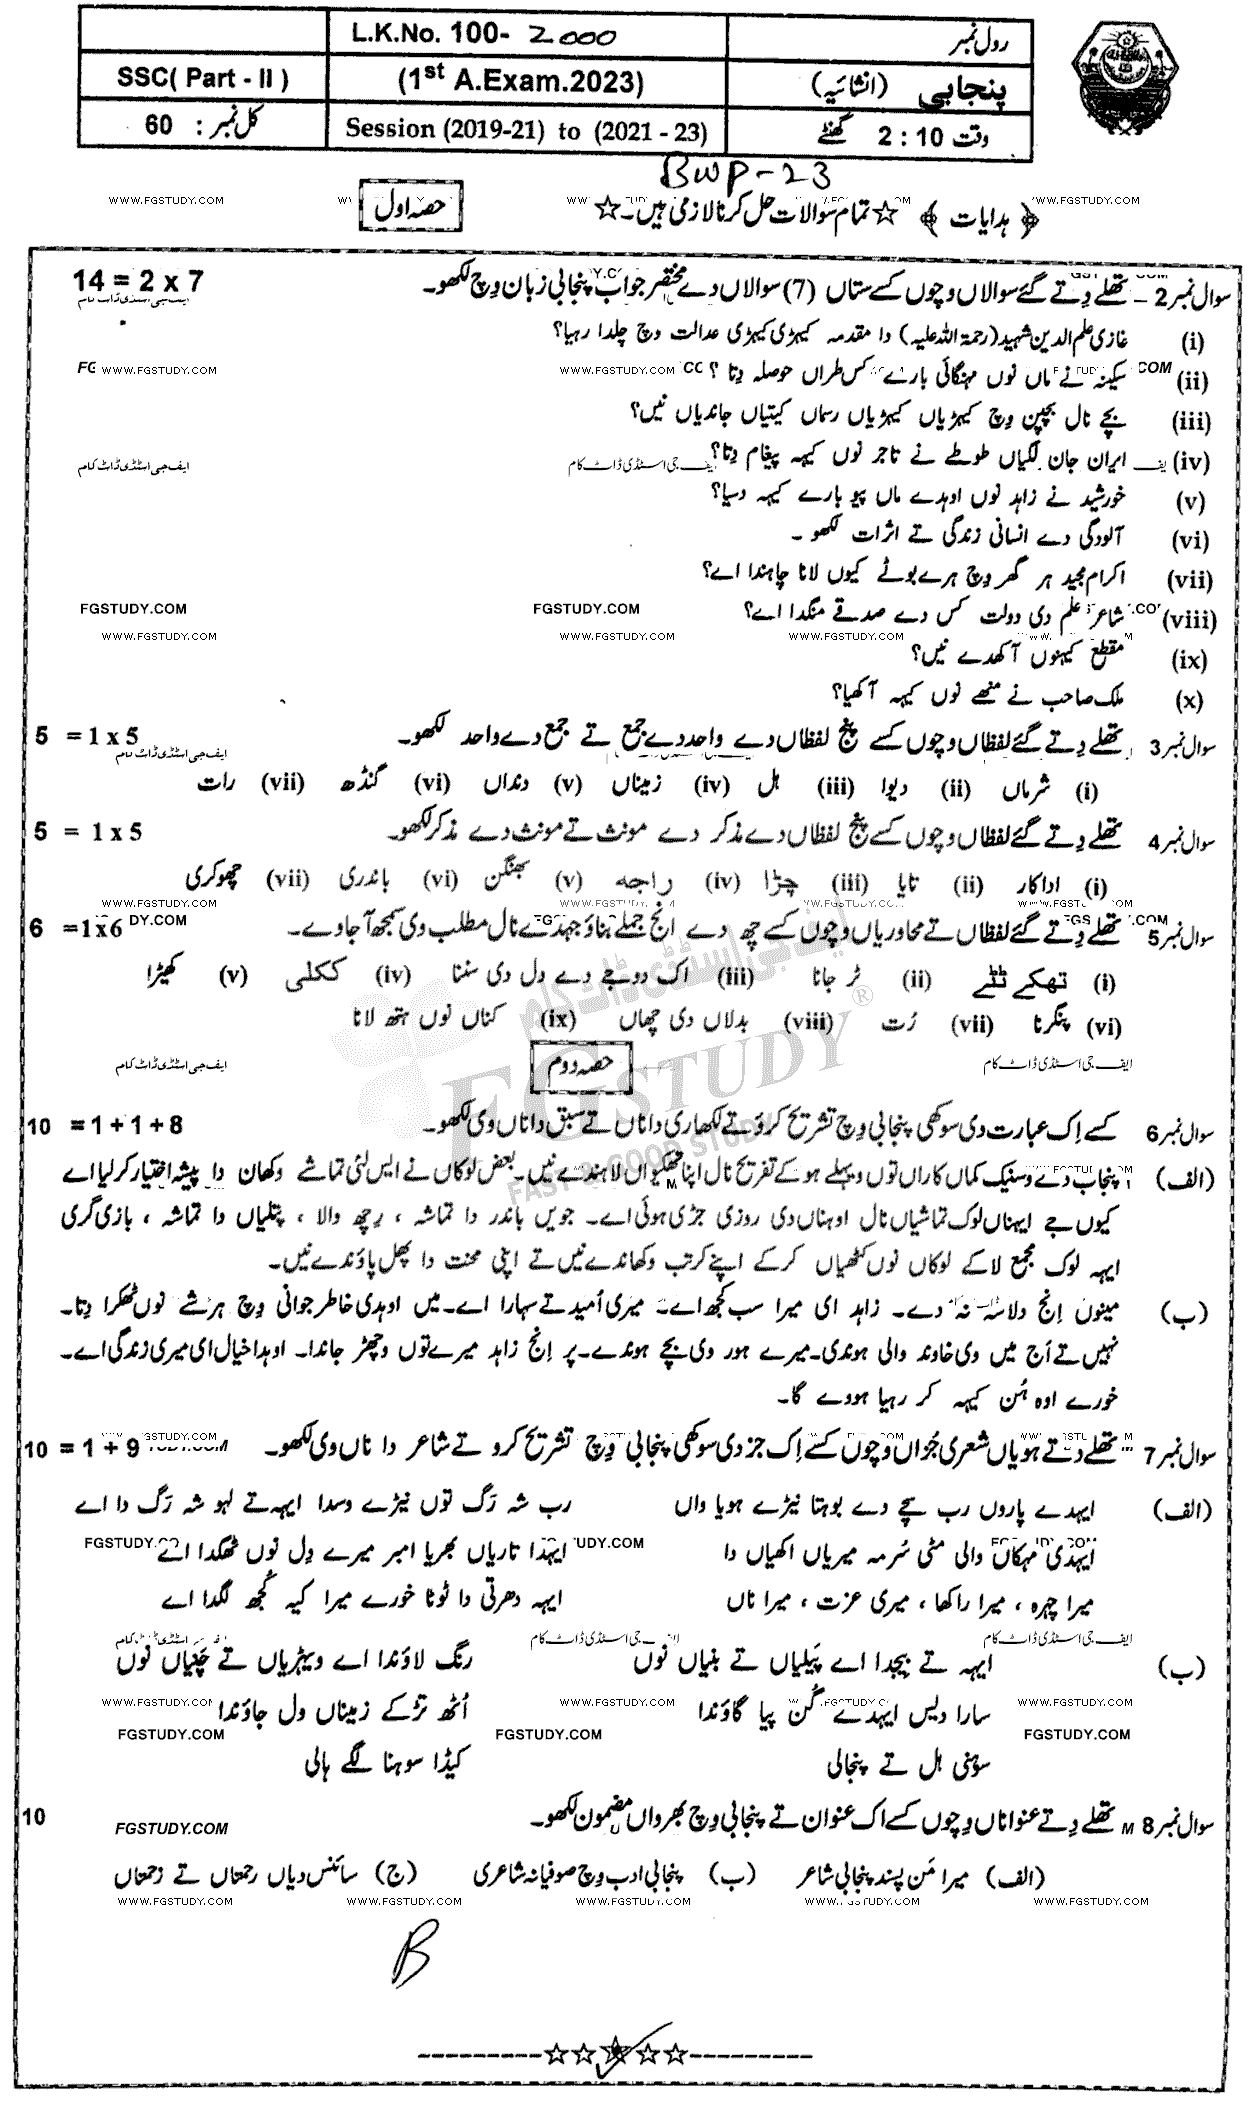 رول نمبر
L.K.No. 100- 2000
پنجابی (انشائیہ)
(1st A.Exam.2023)
SSC( Part - II )
وقت 2 : 10 گھنٹے
Session (2019-21) to (2021 - 23)
کل نمبر : 60
BWP-23
﴿ ہدایات ﴾ ☆ تمام سوالات حل کرنا لازمی ہیں۔ ☆
حصہ اول
سوال نمبر 2 – تھلے دِتے گئے سوالاں وچوں کسے ستاں (7) سوالاں دے مختصر جواب پنجابی زبان وچ لکھو۔ 14 = 2 x 7
(i) غازی علم الدین شہید (رحمۃ اللہ علیہ) دا مقدمہ کیہڑی کیہڑی عدالت وچ چلدا رہیا؟
(ii) سکینہ نے ماں نوں مہنگائی بارے کس طراں حوصلہ دِتا ؟
(iii) بچے نال بچپن وچ کیہڑیاں کیہڑیاں رسماں کیتیاں جاندیاں نیں؟
(iv) ایران جان لگیاں طوطے نے تاجر نوں کیہہ پیغام دِتا؟
(v) خورشید نے زاہد نوں اوہدے ماں پیو بارے کیہہ دسیا؟
(vi) آلودگی دے انسانی زندگی تے اثرات لکھو ۔
(vii) اکرام مجید ہر گھر وچ ہرے بوٹے کیوں لانا چاہندا اے؟
(viii) شاعر علم دی دولت کس دے صدقے منگدا اے؟
(ix) مقطع کیہنوں آکھدے نیں؟
(x) ملک صاحب نے منھے نوں کیہہ آکھیا؟
سوال نمبر 3 تھلے دِتے گئے لفظاں وچوں کسے پنج لفظاں دے واحد دے جمع تے جمع دے واحد لکھو۔ 5 = 1 x 5
(i) شرماں (ii) دیوا (iii) ہل (iv) زمیناں (v) دنداں (vi) گنڈھ (vii) رات
سوال نمبر 4 تھلے دِتے گئے لفظاں وچوں کسے پنج لفظاں دے مذکر دے مونث تے مونث دے مذکر لکھو۔ 5 = 1 x 5
(i) اداکار (ii) تایا (iii) چڑا (iv) راجہ (v) بھنگن (vi) باندری (vii) چھوکری
سوال نمبر 5 تھلے دِتے گئے لفظاں تے محاوریاں وچوں کسے چھ دے انج جملے بناؤ جیہدے نال مطلب وی سمجھ آ جاوے۔ 6 =1x6
(i) تھکے ٹٹے (ii) ٹر جانا (iii) اک دوجے دے دل دی سننا (iv) ککلی (v) کھیڑا
(vi) پنگرنا (vii) رُت (viii) بدلاں دی چھاں (ix) کناں نوں ہتھ لانا
حصہ دوم
سوال نمبر 6 کسے اِک عبارت دی سوکھی پنجابی وچ تشریح کرو تے لکھاری دا ناں تے سبق دا ناں وی لکھو۔ 10 = 1 + 1 + 8
(الف) پنجاب دے وسنیک کماں کاراں توں ویہلے ہو کے تفریح نال اپنا تھکیواں لاہندے نیں۔ بعض لوکاں نے ایس لئی تماشے وکھان دا پیشہ اختیار کر لیا اے
کیوں جے ایہناں لوک تماشیاں نال اوہناں دی روزی جڑی ہوئی اے۔ جویں باندر دا تماشہ ، رچھ والا ، پتلیاں دا تماشہ ، بازی گری
ایہہ لوک مجمع لا کے لوکاں نوں کٹھیاں کر کے اپنے کرتب وکھاندے نیں تے اپنی محنت دا پھل پاؤندے نیں۔
(ب) مینوں اِنج دلاسہ نہ دے۔ زاہد ای میرا سب کجھ اے۔ میری اُمید تے سہارا اے۔ میں اوہدی خاطر جوانی وچ ہر شے نوں ٹھکرا دِتا۔
نہیں تے اَج میں وی خاوند والی ہوندی۔ میرے ہور وی بچے ہوندے۔ پر اِنج زاہد میرے توں وچھڑ جاندا۔ اوہدا خیال ای میری زندگی اے۔
خورے اوہ ہُن کیہہ کر رہیا ہووے گا۔
سوال نمبر 7 تھلے دِتے ہویاں شعری جُزاں وچوں کسے اِک جز دی سوکھی پنجابی وچ تشریح کرو تے شاعر دا ناں وی لکھو۔ 10 = 1 + 9
(الف) ایہدے پاروں رب سچے دے بوہتا نیڑے ہویا واں رب شہ رَگ توں نیڑے وسدا ایہہ تے لہو شہ رَگ دا اے
ایہدی مہکاں والی مٹی سُرمہ میریاں اکھیاں دا ایہدا تاریاں بھریا امبر میرے دِل نوں ٹھگدا اے
میرا چہرہ ، میرا راکھا ، میری عزت ، میرا ناں ایہہ دھرتی دا ٹوٹا خورے میرا کیہ کُجھ لگدا اے
(ب) ایہہ تے بیجدا اے پَیلیاں تے بنیاں نوں رنگ لاؤندا اے ویہڑیاں تے چَنیاں نوں
سارا دیس ایہدے گُن پیا گاؤندا اُٹھ تڑکے زمیناں ول جاؤندا
سوہنی ہل تے پنجالی کیڈا سوہنا لگے ہالی
سوال نمبر 8 تھلے دِتے عنواناں وچوں کسے اک عنوان تے پنجابی وچ بھرواں مضمون لکھو۔ 10
(الف) میرا مَن پسند پنجابی شاعر (ب) پنجابی ادب وچ صوفیانہ شاعری (ج) سائنس دیاں رحمتاں تے زحمتاں
B
FGSTUDY.COM
WWW.FGSTUDY.COM
ایف جی اسٹڈی ڈاٹ کام
FGSTUDY ®
FAST @ GOOD STUDY